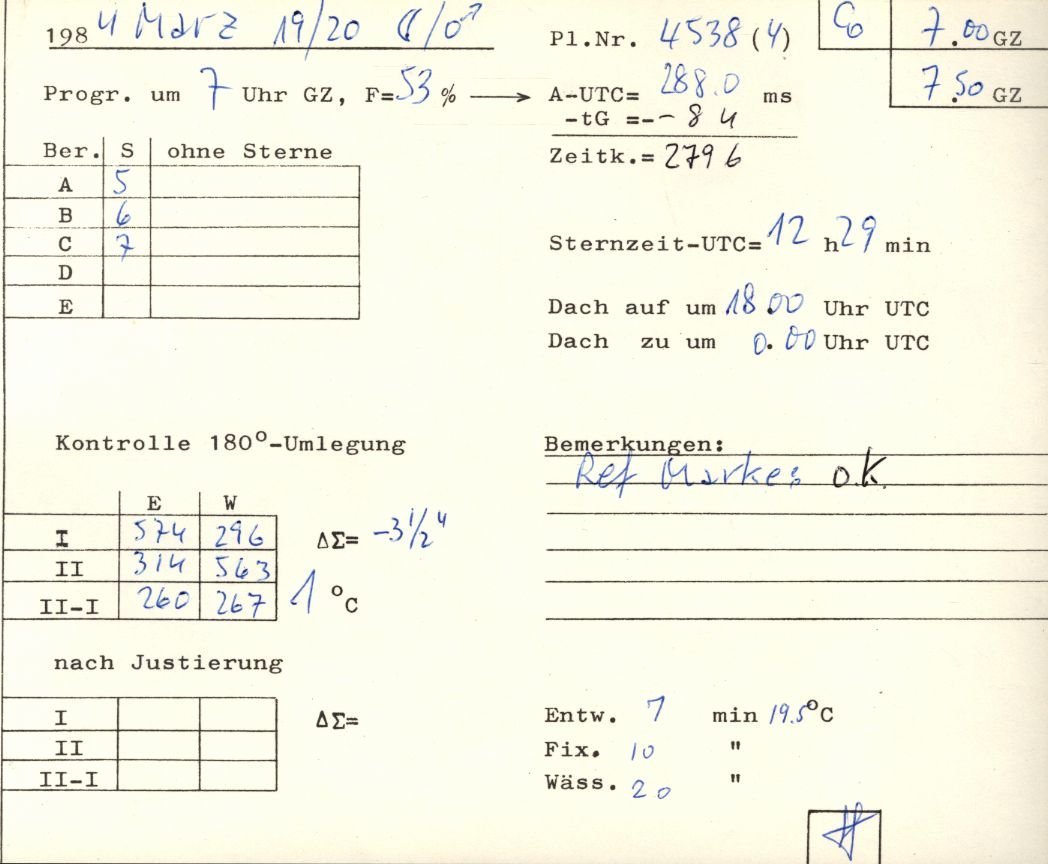 1984 März 19/20 ☾/♂
Pl.Nr. 4538 (4)
Co 7.00 GZ
7.50 GZ
Progr. um 7 Uhr GZ, F=53 % → A-UTC= 288.0 ms
-tG =-- 8 4
Zeitk.= 279 6
Ber. S ohne Sterne
A 5
B 6
C 7
D
E
Sternzeit-UTC= 12 h 29 min
Dach auf um 18.00 Uhr UTC
Dach zu um 0.00 Uhr UTC
Kontrolle 180°-Umlegung
E W
I 574 296 ΔΣ= -3 1/2"
II 314 563
II-I 260 267 1 °C
Bemerkungen:
Ref Marken o.k.
nach Justierung
I ΔΣ=
II
II-I
Entw. 7 min 19.5°C
Fix. 10 "
Wäss. 20 "